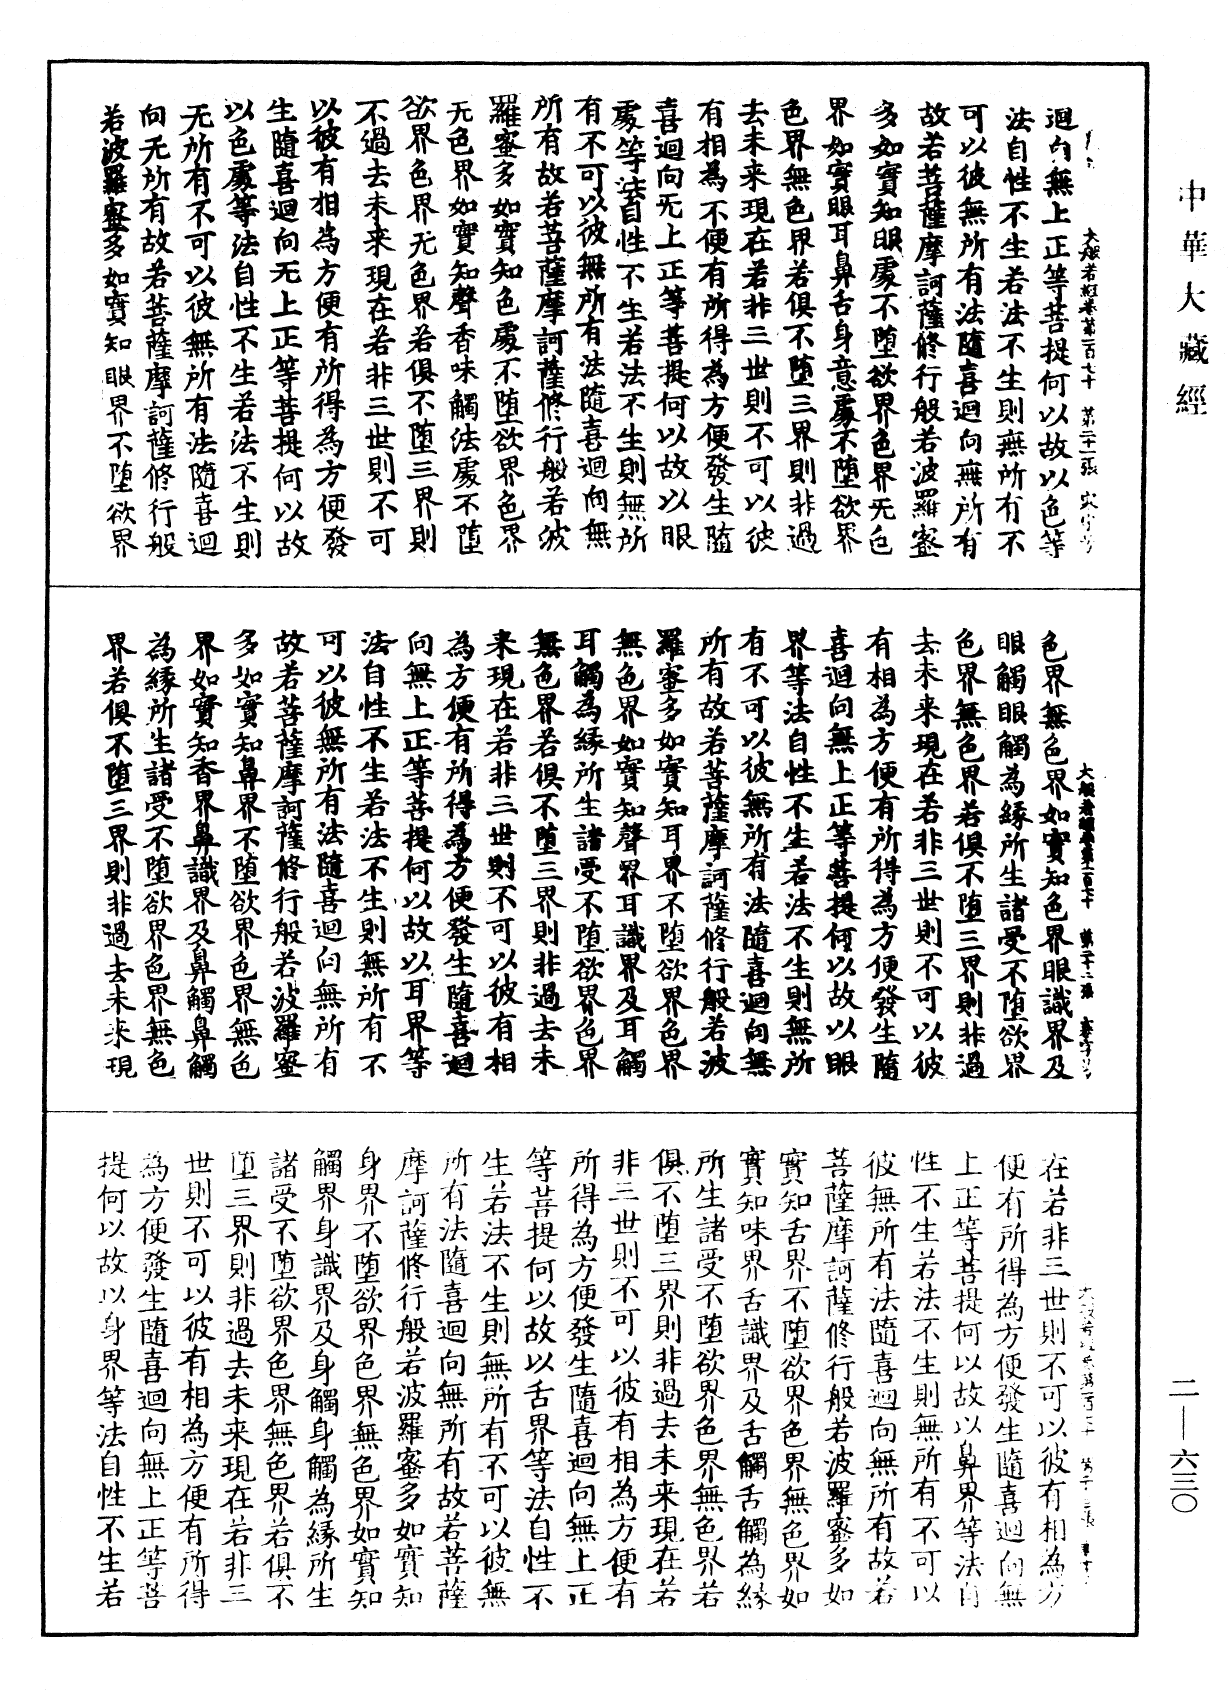 中華大藏經
大般若經卷第一百七十 第二十一張
迴向無上正等菩提何以故以色等
法自性不生若法不生則無所有不
可以彼無所有法隨喜迴向無所有
故若菩薩摩訶薩修行般若波羅蜜
多如實知眼處不墮欲界色界无色
界如實知耳鼻舌身意處不墮欲界
色界無色界若俱不墮三界則非過
去未來現在若非三世則不可以彼
有相為方便有所得為方便發生隨
喜迴向无上正等菩提何以故以眼
處等法自性不生若法不生則無所
有不可以彼無所有法隨喜迴向無
所有故若菩薩摩訶薩修行般若波
羅蜜多如實知色處不墮欲界色界
无色界如實知聲香味觸法處不墮
欲界色界无色界若俱不墮三界則
不過去未來現在若非三世則不可
以彼有相為方便有所得為方便發
生隨喜迴向无上正等菩提何以故
以色處等法自性不生若法不生則
无所有不可以彼無所有法隨喜迴
向无所有故若菩薩摩訶薩修行般
若波羅蜜多如實知眼界不墮欲界
大般若經卷第一百七十 第二十二張
色界無色界如實知色界眼識界及
眼觸眼觸為緣所生諸受不墮欲界
色界無色界若俱不墮三界則非過
去未來現在若非三世則不可以彼
有相為方便有所得為方便發生隨
喜迴向無上正等菩提何以故以眼
界等法自性不生若法不生則無所
有不可以彼無所有法隨喜迴向無
所有故若菩薩摩訶薩修行般若波
羅蜜多如實知耳界不墮欲界色界
無色界如實知聲界耳識界及耳觸
耳觸為緣所生諸受不墮欲界色界
無色界若俱不墮三界則非過去未
來現在若非三世則不可以彼有相
為方便有所得為方便發生隨喜迴
向無上正等菩提何以故以耳界等
法自性不生若法不生則無所有不
可以彼無所有法隨喜迴向無所有
故若菩薩摩訶薩修行般若波羅蜜
多如實知鼻界不墮欲界色界無色
界如實知香界鼻識界及鼻觸鼻觸
為緣所生諸受不墮欲界色界無色
界若俱不墮三界則非過去未來現
在若非三世則不可以彼有相為方
便有所得為方便發生隨喜迴向無
上正等菩提何以故以鼻界等法自
性不生若法不生則無所有不可以
彼無所有法隨喜迴向無所有故若
菩薩摩訶薩修行般若波羅蜜多如
實知舌界不墮欲界色界無色界如
實知味界舌識界及舌觸舌觸為緣
所生諸受不墮欲界色界無色界若
俱不墮三界則非過去未來現在若
非三世則不可以彼有相為方便有
所得為方便發生隨喜迴向無上正
等菩提何以故以舌界等法自性不
生若法不生則無所有不可以彼無
所有法隨喜迴向無所有故若菩薩
摩訶薩修行般若波羅蜜多如實知
身界不墮欲界色界無色界如實知
觸界身識界及身觸身觸為緣所生
諸受不墮欲界色界無色界若俱不
墮三界則非過去未來現在若非三
世則不可以彼有相為方便有所得
為方便發生隨喜迴向無上正等菩
提何以故以身界等法自性不生若
二—六三〇